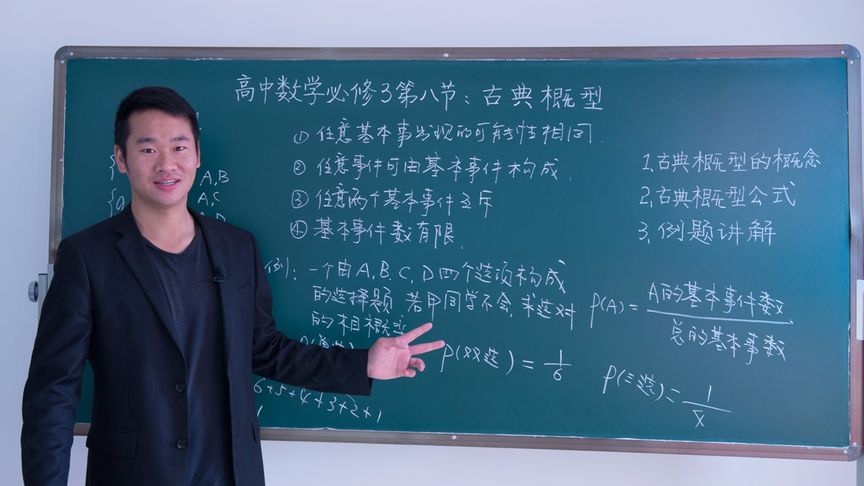 高中数学必修3第八节：古典概型
① 任意基本事出现的可能性相同.
② 任意事件可由基本事件构成.
③ 任意两个基本事件互斥
④ 基本事件数有限.
1.古典概型的概念
2.古典概型公式
3.例题讲解
{
A,B
{a
A,C
例：一个由A,B,C,D四个选项构成
的选择题 若甲同学不会,求选对
的相概率
P(A)=A的基本事件数/总的基本事数
P(双选)=1/6
P(三选)=1/x
6+5+4+3+2+1